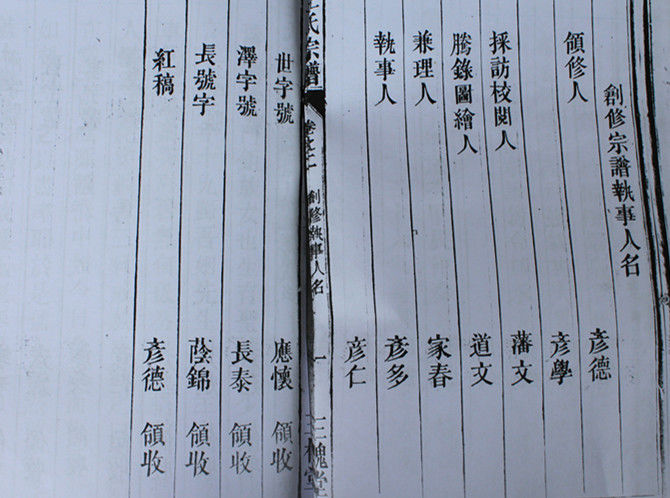 創修宗譜執事人名
領修人 彥德
彥學
採訪校閱人 藩文
騰錄圖繪人 道文
兼理人 家春
執事人 彥多
彥仁
氏宗譜 卷之 創修執事人名 一 三槐堂
世字號 應懷 領收
澤字號 長泰 領收
長號字 蔭錦 領收
紅稿 彥德 領收